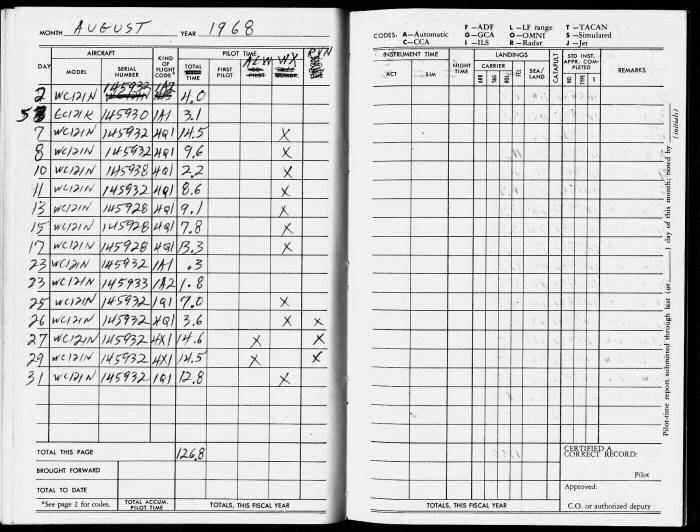 MONTH AUGUST YEAR 1968
DAY AIRCRAFT KIND OF FLIGHT CODE* TOTAL TIME PILOT TIME
MODEL SERIAL NUMBER FIRST PILOT ALW WX
2 WC121N 145933 1A7 4.0
5 EC121K 145930 1A1 3.1
7 WC121N 145932 4Q1 14.5 X
8 WC121N 145932 4Q1 9.6 X
10 WC121N 145938 4Q1 2.2 X
11 WC121N 145932 4Q1 8.6 X
13 WC121N 145928 4Q1 9.1 X
15 WC121N 145928 4Q1 7.8 X
17 WC121N 145928 4Q1 13.3 X
23 WC121N 145932 1A1 .3
23 WC121N 145933 1A2 1.8
25 WC121N 145932 1Q1 7.0 X
26 WC121N 145932 4Q1 3.6 X X
27 WC121N 145932 4X1 14.6 X X
29 WC121N 145932 4X1 14.5 X X
31 WC121N 145932 1Q1 12.8 X
TOTAL THIS PAGE 126.8
BROUGHT FORWARD
TOTAL TO DATE
*See page 2 for codes. TOTAL ACCUM. PILOT TIME TOTALS, THIS FISCAL YEAR
CODES: A—Automatic F—ADF L—LF range T—TACAN
C—CCA G—GCA O—OMNI S—Simulated
I—ILS R—Radar J—Jet
INSTRUMENT TIME NIGHT TIME LANDINGS CATAPULT STD INST. APPR. COMPLETED REMARKS
ACT SIM CARRIER FCL SEA/LAND NO. TYPE S
ARR T&G BOL
CERTIFIED A CORRECT RECORD:
Pilot
Approved:
C.O. or authorized deputy
TOTALS, THIS FISCAL YEAR
Pilot-time report submitted through last (or ____) day of this month; noted by ____ (initials)